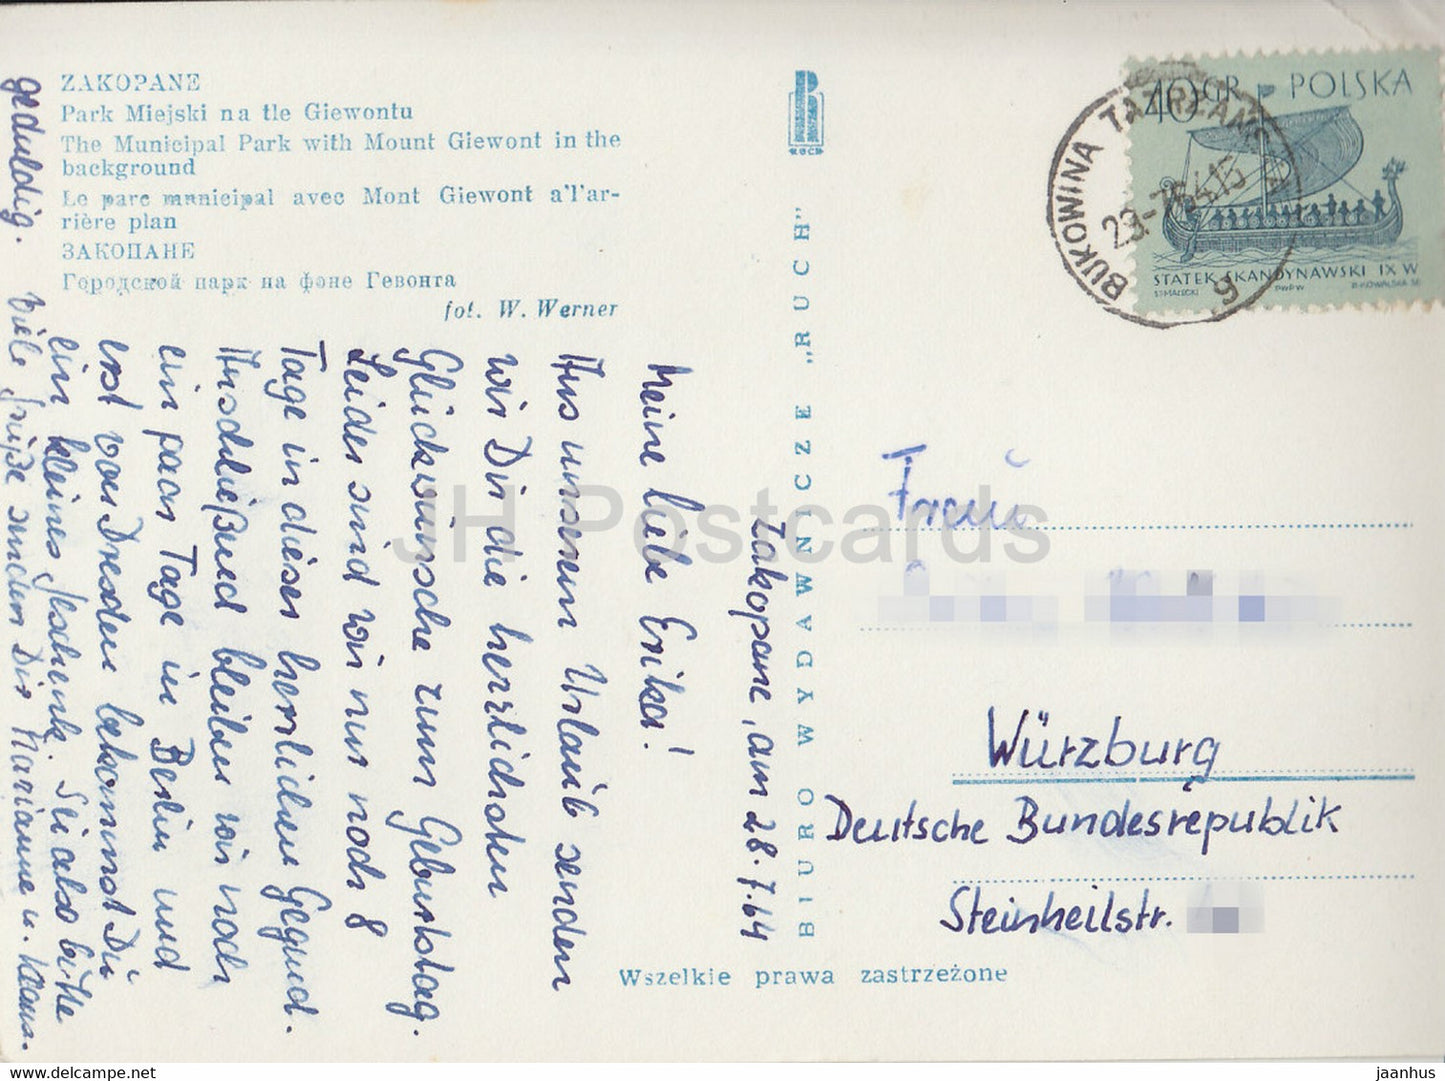 ZAKOPANE
Park Miejski na tle Giewontu
The Municipal Park with Mount Giewont in the
background
Le parc municipal avec Mont Giewont a'l'ar-
rière plan
ЗАКОПАНЕ
Городской парк на фоне Гевонта
fot. W. Werner
Zakopane, am 28.7.64
Meine liebe Erika!
Aus unserem Urlaub senden
wir Dir die herzlichsten
Glückwünsche zum Geburtstag.
Leider sind wir nur noch 8
Tage in dieser herrlichen Gegend.
Anschließend bleiben wir noch
ein paar Tage in Berlin und
erst von Dresden bekommst Du
ein kleines Geschenk. Sei also bitte
geduldig. Viele Grüße senden Dir Marianne u. Klaus.
BIURO WYDAWNICZE „RUCH"
RUCH
Wszelkie prawa zastrzeżone
40 GR POLSKA
STATEK SKANDYNAWSKI IX W
ST.MAŁECKI PWPW R.KOWALSKA SC
BUKOWINA TATRZAŃSKA
g
Frau
Würzburg
Deutsche Bundesrepublik
Steinheilstr.
JH Postcards
jaanhus © www.delcampe.net